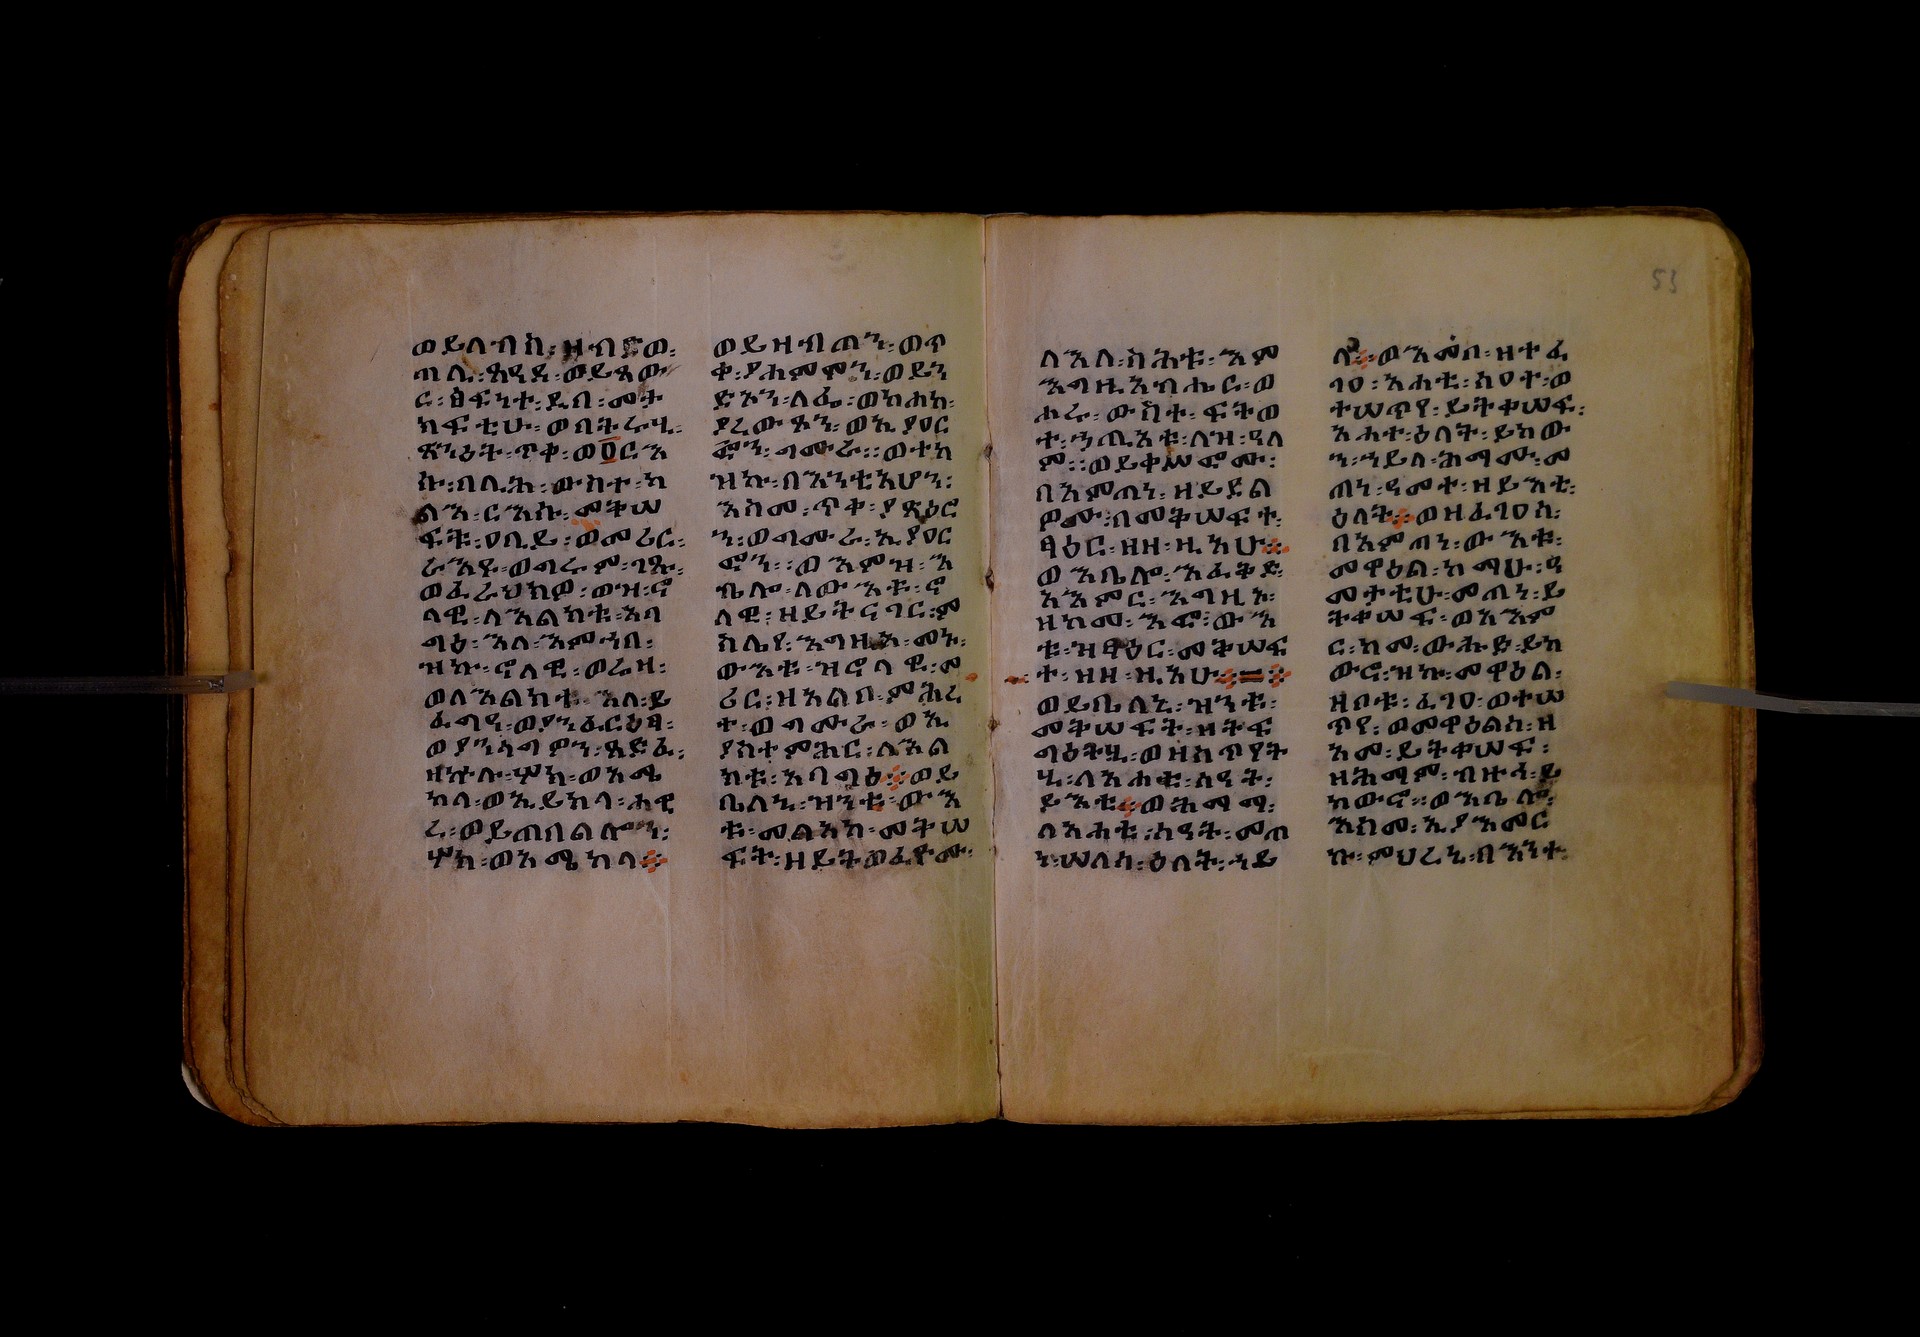 ወይለብስ፡ ዘብድወ፡
ጠሊ፡ ጸዓዳ፡ ወይጸው
ር፡ ፀፍነተ፡ ዲበ፡ መት
ከፍቲሁ፡ ወበትረ፡ ሂ፡
ጽንዕት፡ ጥቀ፡ ወ፬ርእ
ኩ፡ በሊሕ፡ ውስተ፡ ካ
ልእ፡ ርእሱ፡ መቅሠ
ፍቱ፡ ዐቢይ፡ ወመሪር፡
ራእዩ፡ ወግሩም፡ ገጹ፡
ወፈራህክዎ፡ ወዝ፡ ኖ
ላዊ፡ ለእልክቱ፡ አባ
ግዕ፡ እለ፡ እምኀበ፡
ዝኩ፡ ኖላዊ፡ ወሬዛ፡
ወለእልክቱ፡ እለ፡ ይ
ፈግዓ፡ ወያንፈርዕፃ፡
ወያንኣግዎን፡ ጸድፈ፡
ዘኵሉ፡ ሦክ፡ ወአሜ
ካላ፡ ወኢይክላ፡ ሐዊ
ረ፡ ወይጠበልሎን፡
ሦክ፡ ወአሜካላ።
ወይዘብጠን፡ ወጥ
ቀ፡ ያሐምሞን፡ ወይን
ድኦን፡ ለፌ፡ ወከሐከ፡
ያረውጾን፡ ወኢያዐር
ፎን፡ ግሙራ። ወተከ
ዝኩ፡ በእንቲአሆን፡
እስመ፡ ጥቀ፡ ያጽዕሮ
ን፡ ወግሙራ፡ ኢያዐር
ፎን። ወእምዝ፡ እ
ቤሎ፡ ለውእቱ፡ ኖ
ላዊ፡ ዘይትናገር፡ ም
ስሌየ፡ እግዚኦ፡ መኑ፡
ውእቱ፡ ዝኖላዊ፡ መ
ሪር፡ ዘአልቦ፡ ምሕረ
ተ፡ ወግሙራ፡ ወኢ
ያስተምሕር፡ ለእል
ክቱ፡ አባግዕ። ወይ
ቤለኒ፡ ዝንቱ፡ ውእ
ቱ፡ መልአከ፡ መቅሠ
ፍት፡ ዘይትወፈዮሙ፡
ለእለ፡ ስሕቱ፡ እም
እግዚአብሔር፡ ወ
ሖሩ፡ ውስተ፡ ፍትወ
ተ፡ ኃጢአቱ፡ ለዝ፡ ዓለ
ም። ወይቀሥፎሙ፡
በአምጣነ፡ ዘይደል
ዎሙ፡ በመቅሠፍተ፡
ፃዕር፡ ዘዘ፡ ዚአሁ።
ወእቤሎ፡ እፈቅድ፡
አእምር፡ እግዚኦ፡
ዘከመ፡ እፎ፡ ውእ
ቱ፡ ዝፃዕር፡ መቅሠፍ
ት፡ ዘዘ፡ ዚአሁ።
ወይቤለኒ፡ ዝንቱ፡
መቅሠፍት፡ ዘትፍ
ግዕትሂ፡ ወዘስጥየት
ሂ፡ ለአሐቲ፡ ሰዓት፡
ይእቲ። ወሕማማ፡
ለአሐቲ፡ ሰዓት፡ መጠ
ነ፡ ሠለስ፡ ዕለት፡ ኃይ
ላ። ወእመቦ፡ ዘተፈ
ገዐ፡ አሐቲ፡ ሰዐተ፡ ወ
ተሠጥየ፡ ይትቀሠፍ፡
አሐተ፡ ዕለት፡ ይከው
ን፡ ኃይለ፡ ሕማሙ፡ መ
ጠነ፡ ዓመተ፡ ዘይእቲ፡
ዕለት። ወዘፈገዐሰ፡
በአምጣነ፡ ውእቱ፡
መዋዕል፡ ከማሁ፡ ዓ
መታቲሁ፡ መጠነ፡ ይ
ትቀሠፍ፡ ወአእም
ር፡ ከመ፡ ውሑድ፡ ይከ
ውኖ፡ ዝኩ፡ መዋዕል፡
ዘቦቱ፡ ፈገዐ፡ ወተሠ
ጥየ፡ ወመዋዕልሰ፡ ዘ
አመ፡ ይትቀሠፍ፡
ዘሕማም፡ ብዙኃ፡ ይ
ከውኖ፡ ወእቤሎ፡
እስመ፡ ኢያእመር
ኩ፡ ምህረኒ፡ በእንተ፡
53